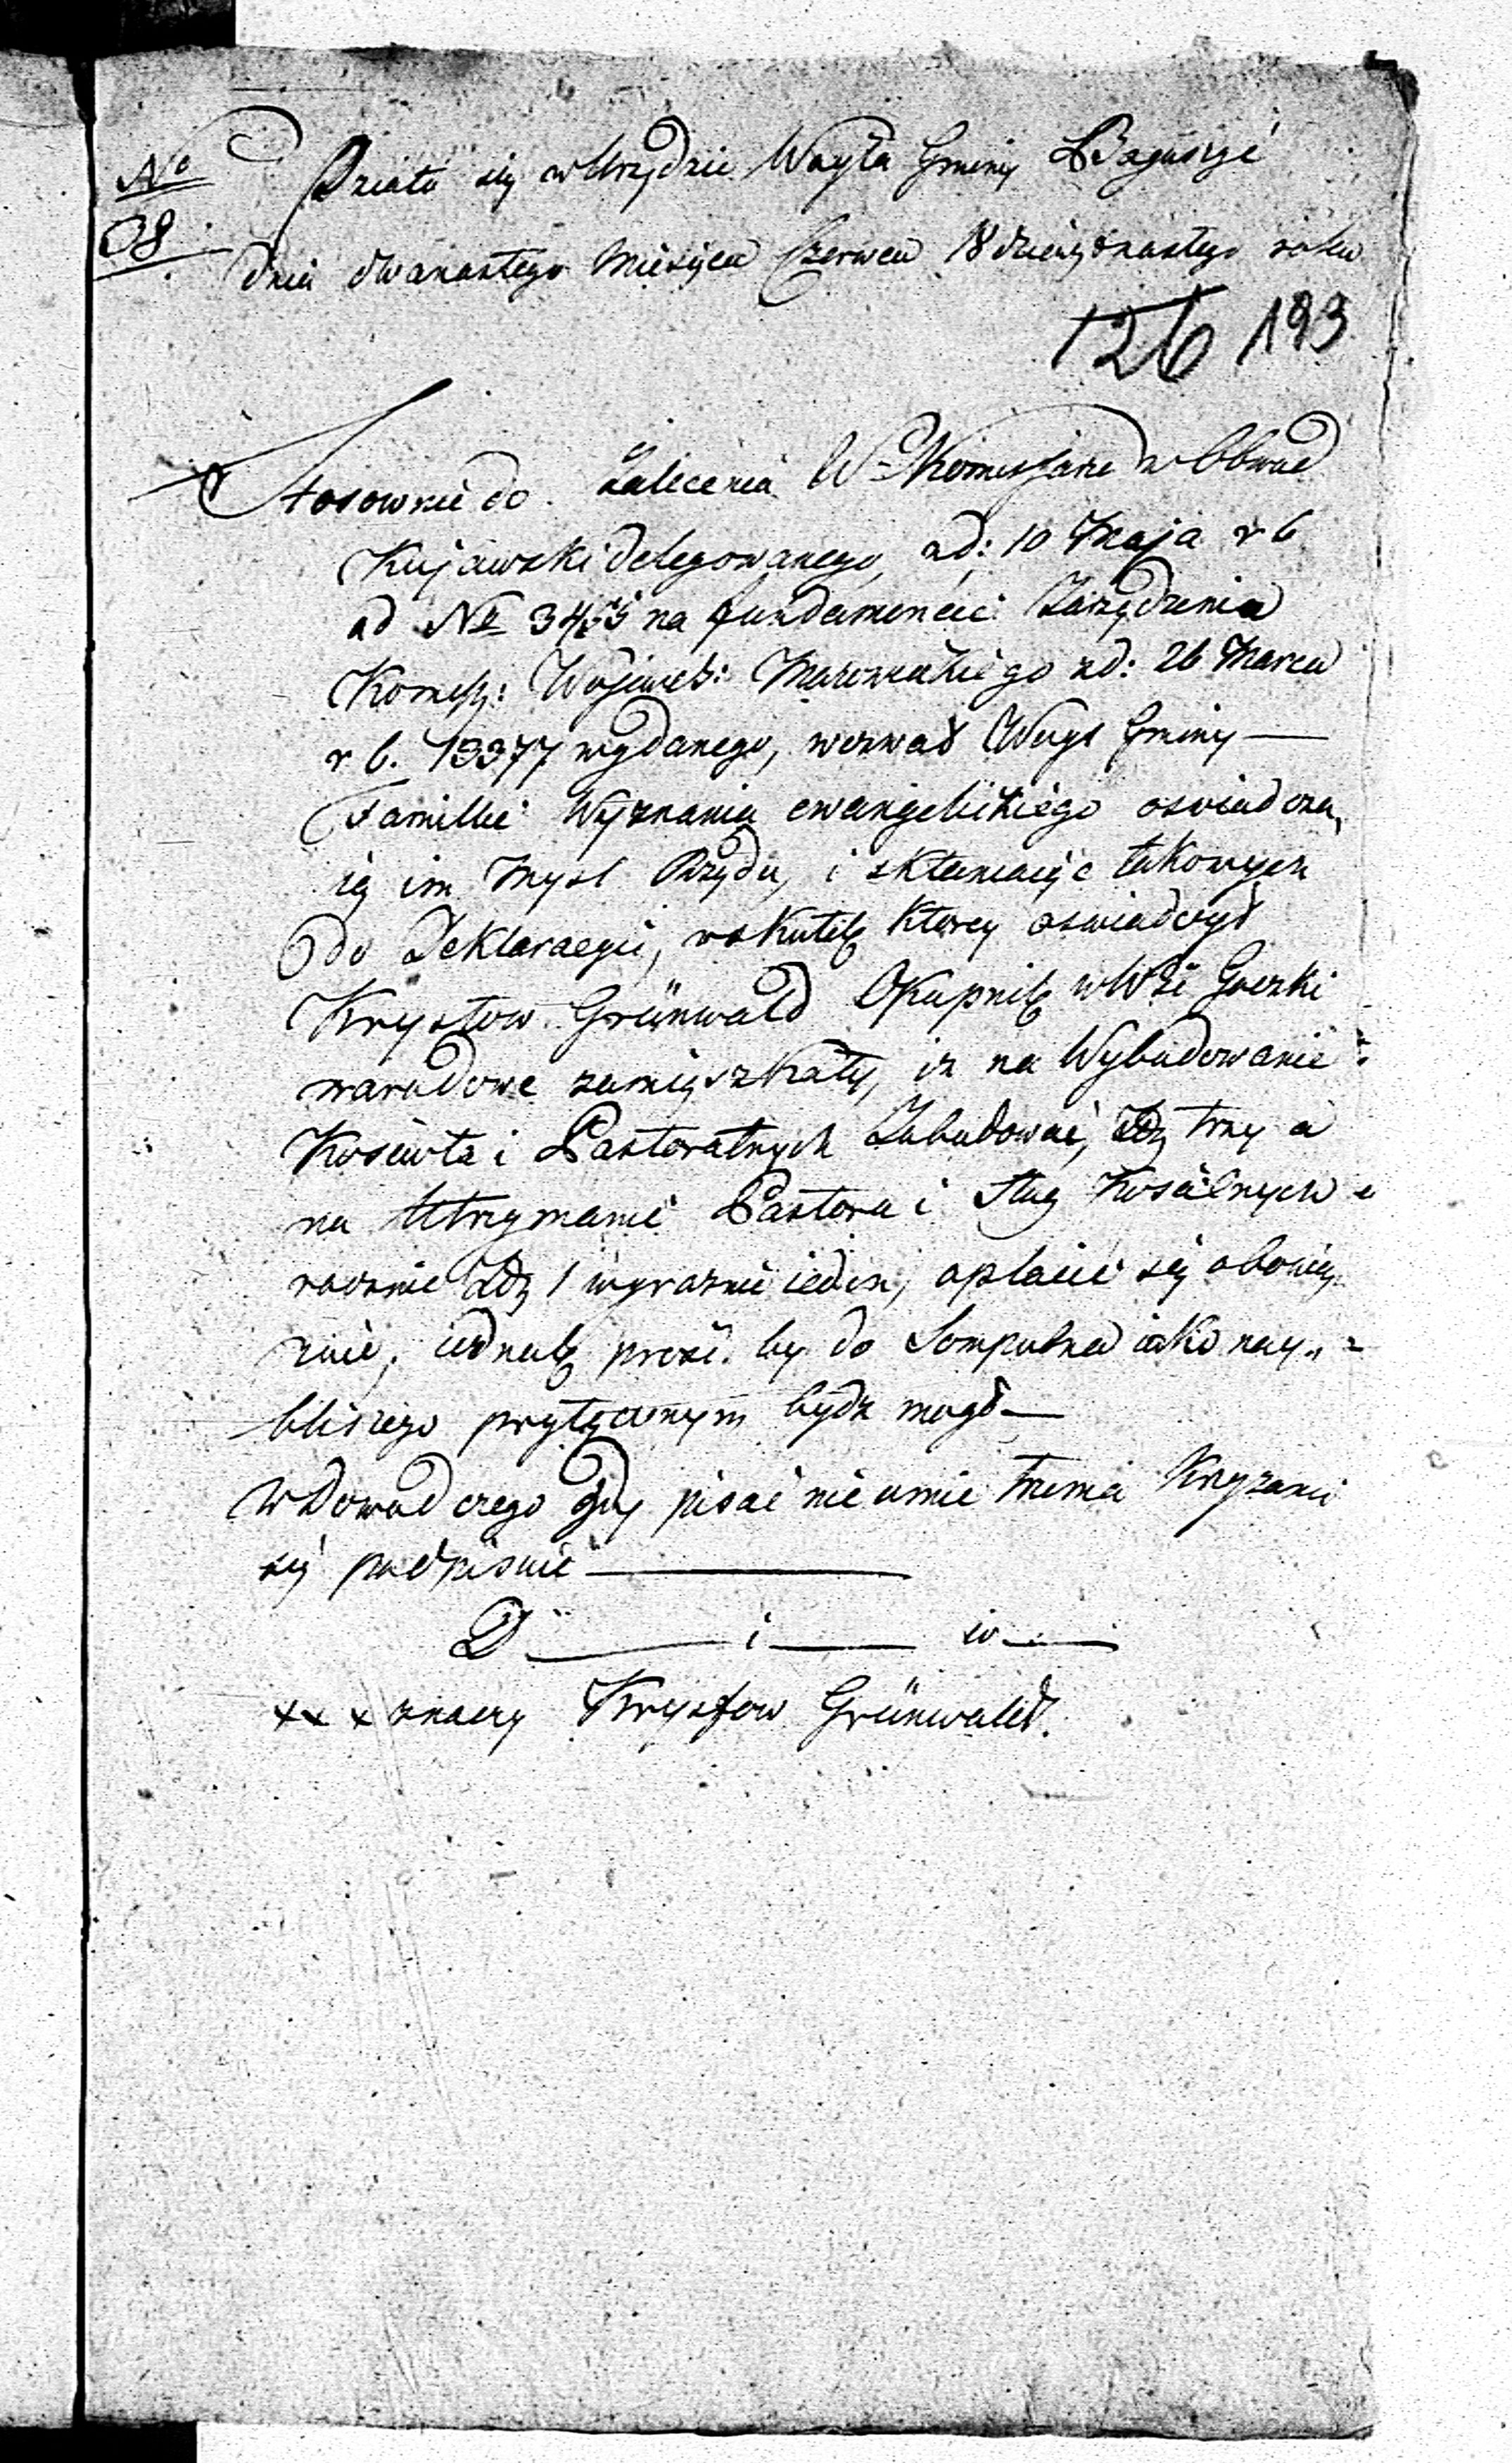 No Działo się w Urzędzie Woyta Gminy Boguszyc
08. Dnia dwanastego Miesiąca Czerwca 18 dziewiętnastego roku
126 193
Stosownie do Zalecenia W. Kommissarza w Obwod
Kujawski delegowanego, z d: 10 Maja r b
ad No na fundamencie Zarządzenia
Komiss: Wojewdz: Mazowieckiego z d: 26 Marca
r b. 13377 wydanego, wezwał Woyt Gminy —
Familie Wyznania ewangelickiego oswiadcza„
ią im Mysl Rządu, i skłaniaiąc takowych
do Deklaracyi, w skutek ktorey oswiadczył
Krysztow Grünwald Okupnik w Wsi Gorzki
narodowe zamięszkały, iz na Wybudowanie
Koscioła i Pastoralnych Zabudowań, złł trzy a
na Utrzymanie Pastora i Sług Kościelnych
rocznie złł 1 wyraznie ieden, opłacić się obowią„
zuie, iednak prosi by do Sompolna iako nay„
bliszego przyłączonym bydz mogł —
W Dowod czego gdy pisać nie umie trzema Krzyzami
się podpisuie —
D — i — w —
x x x znaczy Krysztow Grünwald.